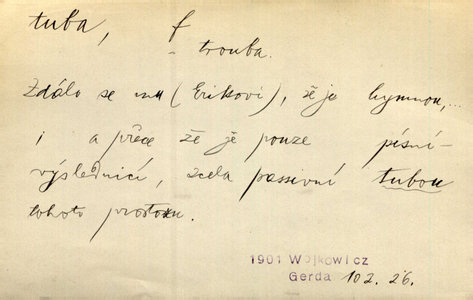 tuba, f
trouba.
Zdálo se mu (Erikovi), že je hymnou,...
i a přece že je pouze písní-
výslednicí, zcela passivní tubou
tohoto prostoru.
1901 Wojkowicz
Gerda 102. 26.